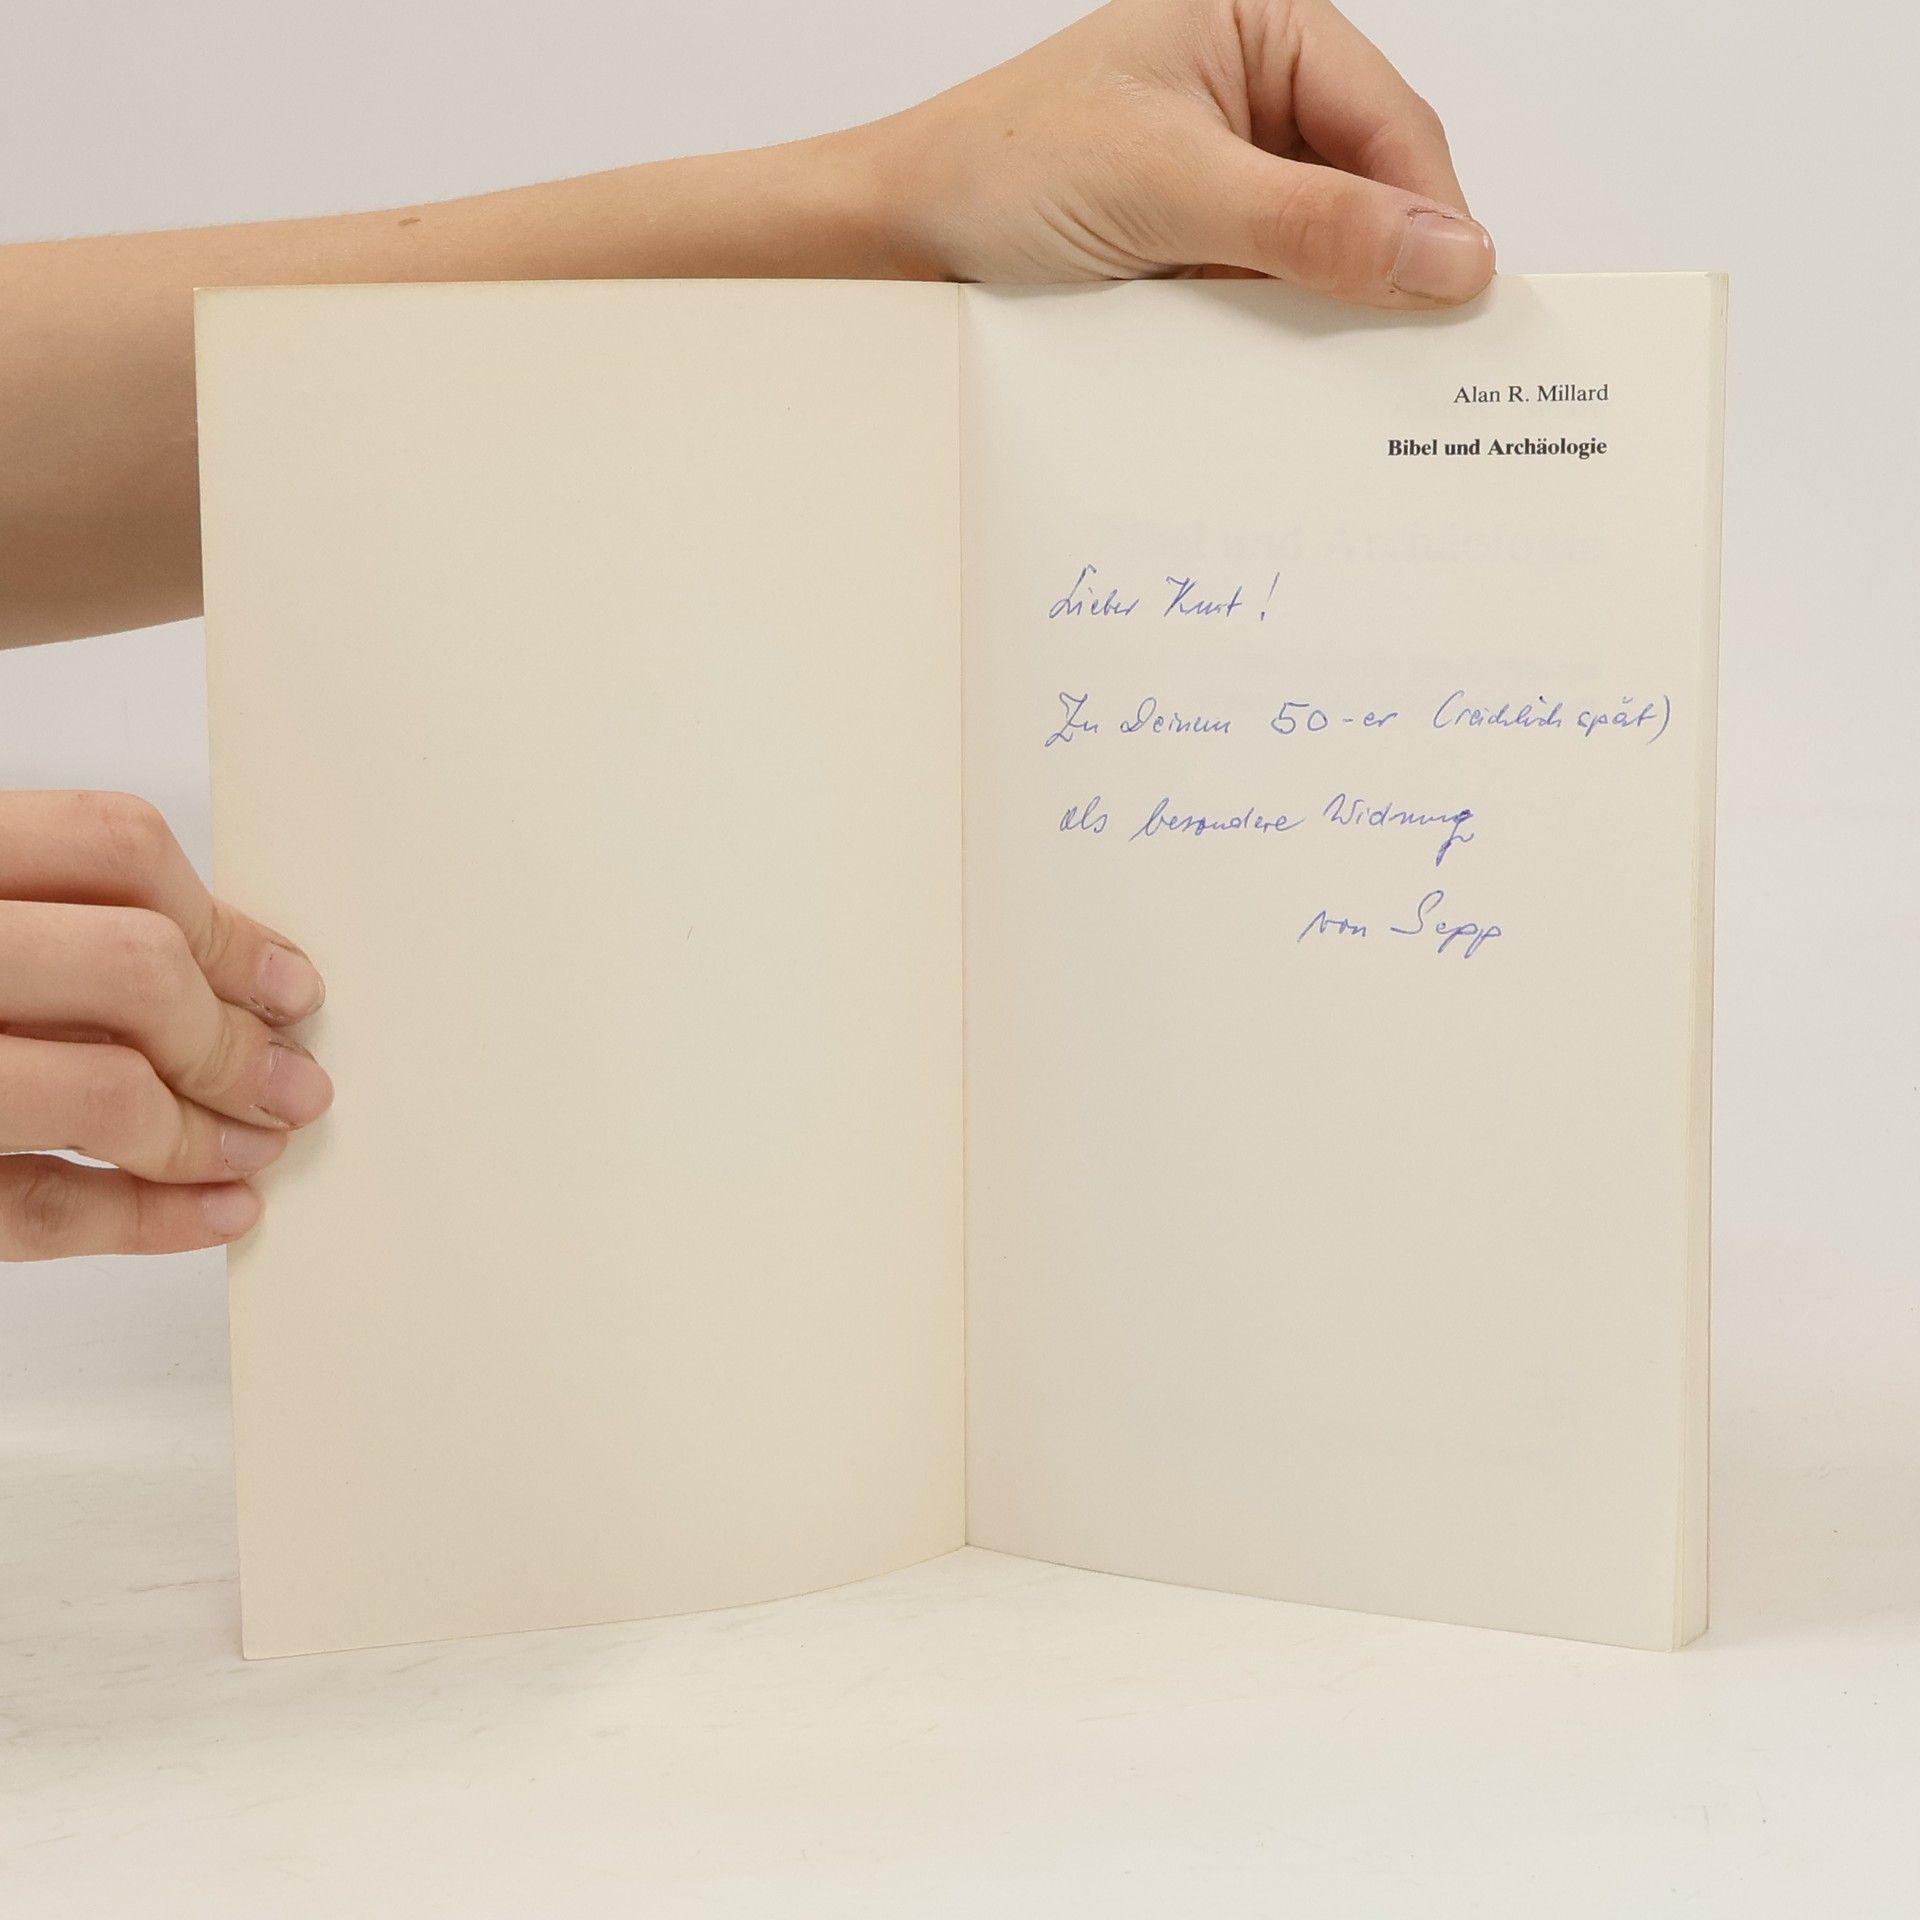 Alan R. Millard
Bibel und Archäologie
Lieber Kurt!
Zu Deinem 50-er (reichlich spät)
als besondere Widmung
von Sepp